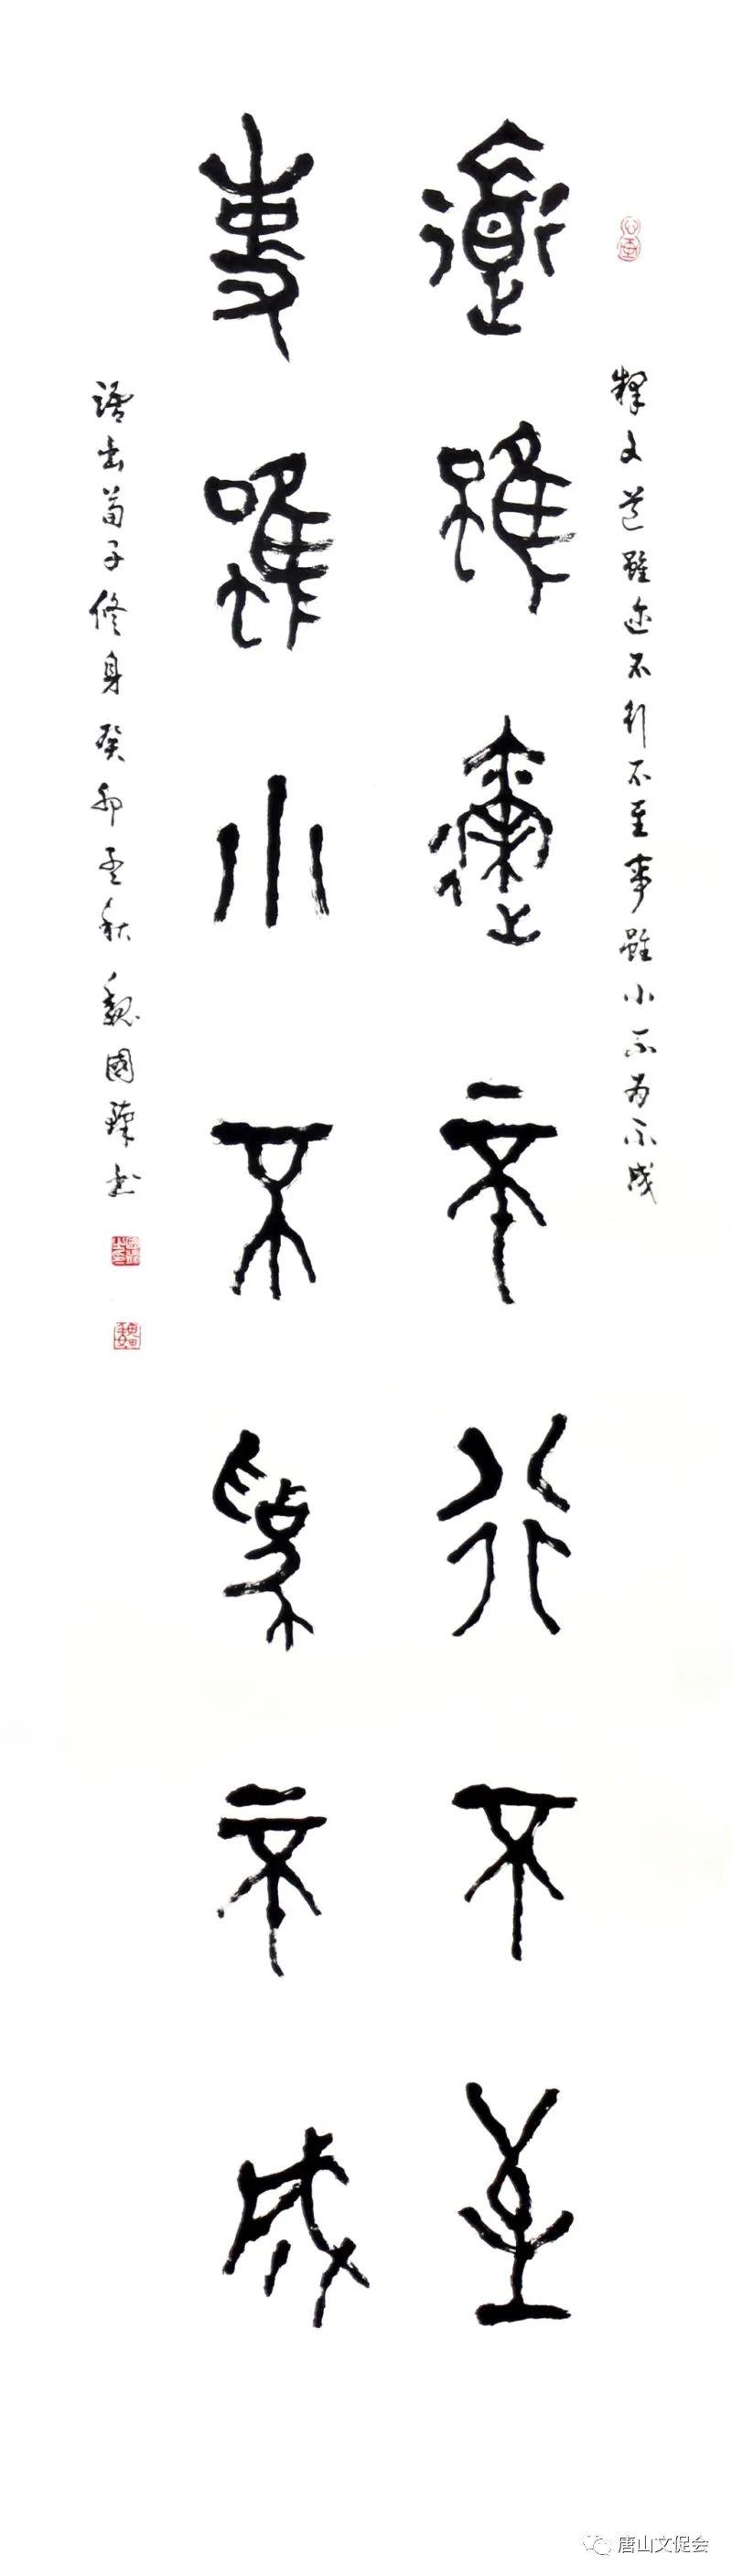 釋文道雖迩不行不至事雖小不為不成
道雖邇不行不至
事雖小不為不成
語出荀子修身癸卯孟秋魏國臻书
唐山文促会